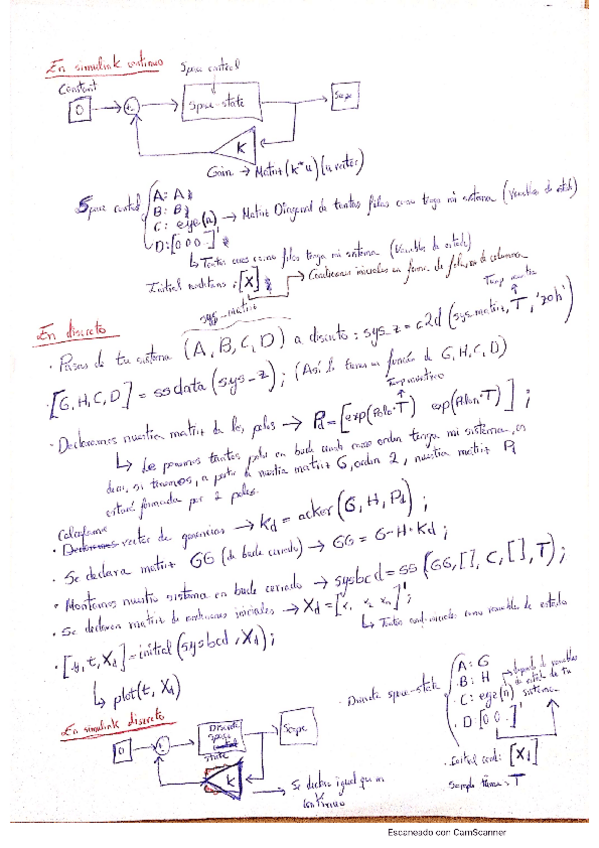 En simulink continuo
Constant
Space control
0
Space-state
Scope
K
Gain → Matriz (K*u) (u vector)
Space control
A: A;
B: B;
C: eye(n) → Matriz Diagonal de tantas filas como tenga mi sistema (Variables de estado)
D: [0 0 0 .]'
↳ Tantos ceros como filas tenga mi sistema (Variables de estado)
Initial conditions : [X] → Condiciones iniciales en forma de columna
En discreto
sys_matriz
Tiemp muestreo
· Pasas de tu sistema (A, B, C, D) a discreto: sys_z = c2d (sys_matriz, T, 'zoh')
[G,H,C,D] = ssdata (sys_z); (Así lo tienes en función de G, H, C, D)
Tiemp muestreo
· Declaramos nuestra matriz de los polos → Pd = [exp(Polo·T) exp(Polo·T)];
↳ Le ponemos tantos polos en bucle cerrado como orden tenga mi sistema, es
decir, si tenemos, a partir de nuestra matriz G, orden 2, nuestra matriz Pd
estará formada por 2 polos.
Calculamos
· vector de ganancias → Kd = acker (G, H, Pd);
· Se declara matriz GG (de bucle cerrado) → GG = G-H·Kd;
· Montamos nuestro sistema en bucle cerrado → sysbcd = ss (GG, [], C, [], T);
· Se declaran matriz de condiciones iniciales → Xd = [x1 x2 xn]';
↳ Tantas cond. iniciales como variables de estado
· [y, t, Xd] = initial (sysbcd, Xd);
↳ plot(t, Xd)
En simulink discreto
0
Discrete space state
Scope
K
→ Se declara igual que en
continuo
· Discrete space-state
A: G
B: H
C: eye(n) → depende de variables
de estado de tu
sistema
D [0 0 .]'
· Initial cond: [Xd]
Sample time = T
Escaneado con CamScanner